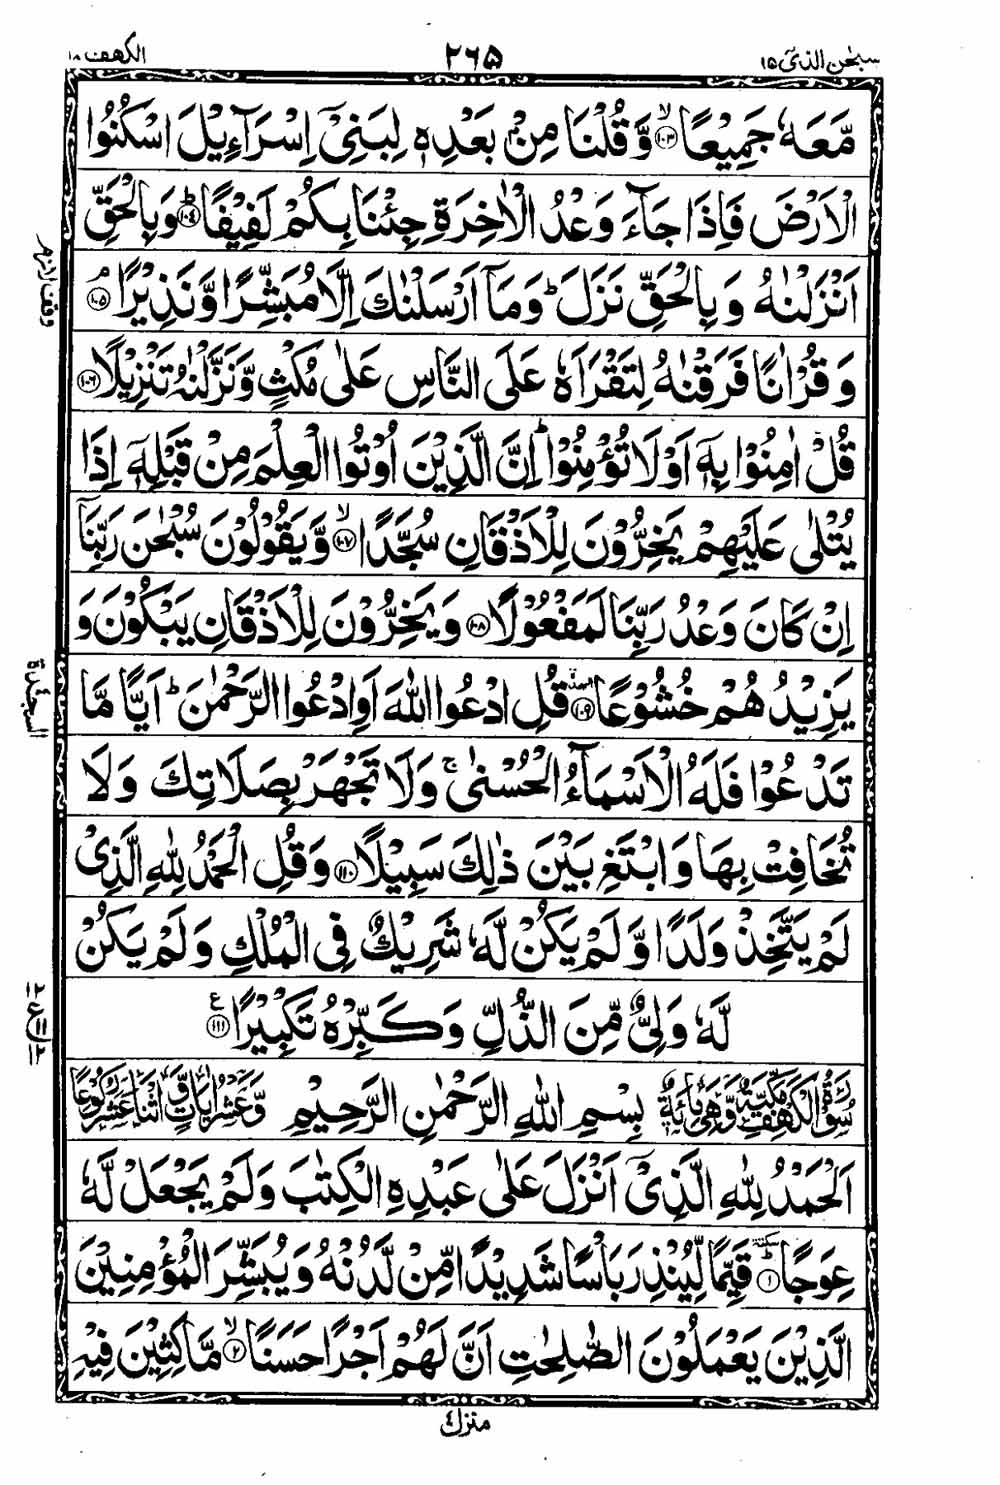 سبحٰن الذیٓ ١٥
٢٦٥
الكهف ١٨
مَّعَهٗ جَمِیْعًا ۙ‏﴿١٠٣﴾ وَّ قُلْنَا مِنْۢ بَعْدِهٖ لِبَنِیْۤ اِسْرَآءِیْلَ اسْكُنُوا
الْاَرْضَ فَاِذَا جَآءَ وَعْدُ الْاٰخِرَةِ جِئْنَا بِكُمْ لَفِیْفًا ؕ‏﴿١٠٤﴾ وَ بِالْحَقِّ
اَنْزَلْنٰهُ وَ بِالْحَقِّ نَزَلَ ؕ وَ مَاۤ اَرْسَلْنٰكَ اِلَّا مُبَشِّرًا وَّ نَذِیْرًا ۘ‏﴿١٠٥﴾
وَ قُرْاٰنًا فَرَقْنٰهُ لِتَقْرَاَهٗ عَلَی النَّاسِ عَلٰی مُكْثٍ وَّ نَزَّلْنٰهُ تَنْزِیْلًا ﴿١٠٦﴾
قُلْ اٰمِنُوْا بِهٖۤ اَوْ لَا تُؤْمِنُوْا ؕ اِنَّ الَّذِیْنَ اُوْتُوا الْعِلْمَ مِنْ قَبْلِهٖۤ اِذَا
یُتْلٰی عَلَیْهِمْ یَخِرُّوْنَ لِلْاَذْقَانِ سُجَّدًا ۙ‏﴿١٠٧﴾ وَّ یَقُوْلُوْنَ سُبْحٰنَ رَبِّنَاۤ
اِنْ كَانَ وَعْدُ رَبِّنَا لَمَفْعُوْلًا ﴿١٠٨﴾ وَ یَخِرُّوْنَ لِلْاَذْقَانِ یَبْكُوْنَ وَ
یَزِیْدُهُمْ خُشُوْعًا ﴿١٠٩﴾ قُلِ ادْعُوا اللّٰهَ اَوِ ادْعُوا الرَّحْمٰنَ ؕ اَیًّا مَّا
تَدْعُوْا فَلَهُ الْاَسْمَآءُ الْحُسْنٰی ۚ وَ لَا تَجْهَرْ بِصَلَاتِكَ وَ لَا
تُخَافِتْ بِهَا وَ ابْتَغِ بَیْنَ ذٰلِكَ سَبِیْلًا ﴿١١٠﴾ وَ قُلِ الْحَمْدُ لِلّٰهِ الَّذِیْ
لَمْ یَتَّخِذْ وَلَدًا وَّ لَمْ یَكُنْ لَّهٗ شَرِیْكٌ فِی الْمُلْكِ وَ لَمْ یَكُنْ
لَّهٗ وَلِیٌّ مِّنَ الذُّلِّ وَ كَبِّرْهُ تَكْبِیْرًا ﴿١١١﴾ ع
سُوْرَةُ الْكَهْفِ مَكِّیَّةٌ وَّهِیَ مِائَةٌ بِسْمِ اللّٰهِ الرَّحْمٰنِ الرَّحِیْمِ وَّعَشْرُ اٰیَاتٍ وَّ اثْنَا عَشَرَ رُكُوْعًا
اَلْحَمْدُ لِلّٰهِ الَّذِیْۤ اَنْزَلَ عَلٰی عَبْدِهِ الْكِتٰبَ وَ لَمْ یَجْعَلْ لَّهٗ
عِوَجًا ؕ‏﴿١﴾ سكتة قَیِّمًا لِّیُنْذِرَ بَاْسًا شَدِیْدًا مِّنْ لَّدُنْهُ وَ یُبَشِّرَ الْمُؤْمِنِیْنَ
الَّذِیْنَ یَعْمَلُوْنَ الصّٰلِحٰتِ اَنَّ لَهُمْ اَجْرًا حَسَنًا ۙ‏﴿٢﴾ مَّاكِثِیْنَ فِیْهِ
وقف لازم
السجدة
منزل ٤